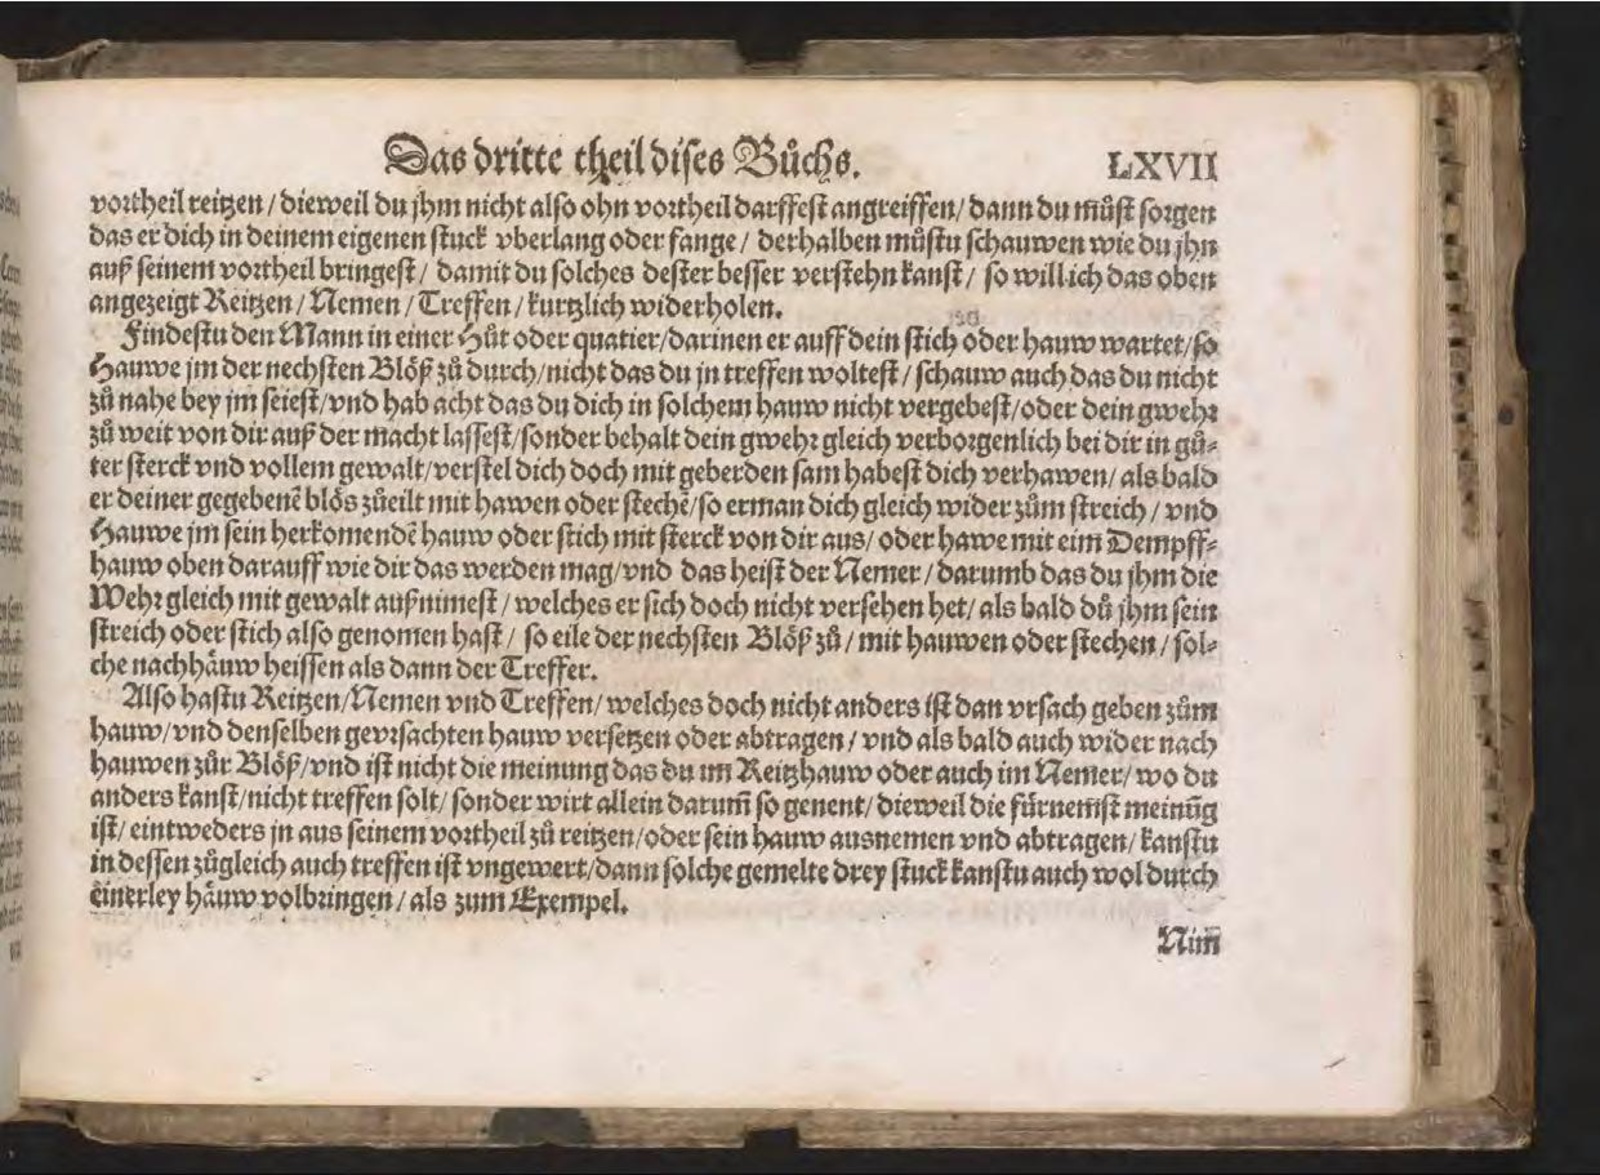 Das dritte theil dises Bůchs. LXVII
vortheil reitzen / dieweil du jhm nicht also ohn vortheil darffest angreiffen / dann du můst sorgen
das er dich in deinem eigenen stuck vberlang oder fange / derhalben můstu schauwen wie du jhn
auß seinem vortheil bringest / damit du solches dester besser verstehn kanst / so will ich das oben
angezeigt Reitzen / Nemen / Treffen / kurtzlich widerholen.
Findestu den Mann in einer Hůt oder quatier / darinen er auff dein stich oder hauw wartet / so
Hauwe jm der nechsten Blöß zů durch / nicht das du jn treffen woltest / schauw auch das du nicht
zů nahe bey jm seiest / vnd hab acht das du dich in solchem hauw nicht vergebest / oder dein gwehr
zů weit von dir auß der macht lassest / sonder behalt dein gwehr gleich verborgenlich bei dir in gů-
ter sterck vnd vollem gewalt / verstel dich doch mit geberden sam habest dich verhawen / als bald
er deiner gegebenẽ blös zůeilt mit hawen oder stechẽ / so erman dich gleich wider zům streich / vnd
Hauwe jm sein herkomendẽ hauw oder stich mit sterck von dir aus / oder hawe mit eim Dempff-
hauw oben darauff wie dir das werden mag / vnd das heist der Nemer / darumb das du jhm die
Wehr gleich mit gewalt außnimest / welches er sich doch nicht versehen het / als bald dů jhm sein
streich oder stich also genomen hast / so eile der nechsten Blöß zů / mit hauwen oder stechen / sol-
che nachhäuw heissen als dann der Treffer.
Also hastu Reitzen / Nemen vnd Treffen / welches doch nicht anders ist dan vrsach geben zům
hauw / vnd denselben gevrsachten hauw versetzen oder abtragen / vnd als bald auch wider nach
hauwen zůr Blöß / vnd ist nicht die meinung das du im Reitzhauw oder auch im Nemer / wo du
anders kanst / nicht treffen solt / sonder wirt allein darum̃ so genent / dieweil die fürnemst meinũg
ist / eintweders jn aus seinem vortheil zů reitzen / oder sein hauw ausnemen vnd abtragen / kanstu
in dessen zůgleich auch treffen ist vngewert / dann solche gemelte drey stuck kanstu auch wol durch
einerley häuw volbringen / als zum Exempel.
Nim̃